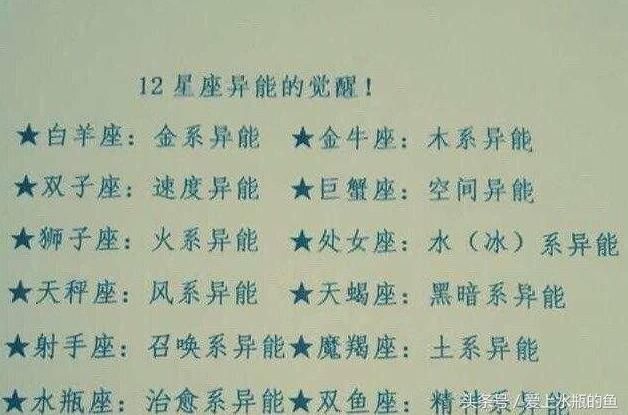 12星座异能的觉醒！
★白羊座：金系异能 ★金牛座：木系异能
★双子座：速度异能 ★巨蟹座：空间异能
★狮子座：火系异能 ★处女座：水（冰）系异能
★天秤座：风系异能 ★天蝎座：黑暗系异能
★射手座：召唤系异能 ★魔羯座：土系异能
★水瓶座：治愈系异能 ★双鱼座：精
头条号／爱上水瓶的鱼